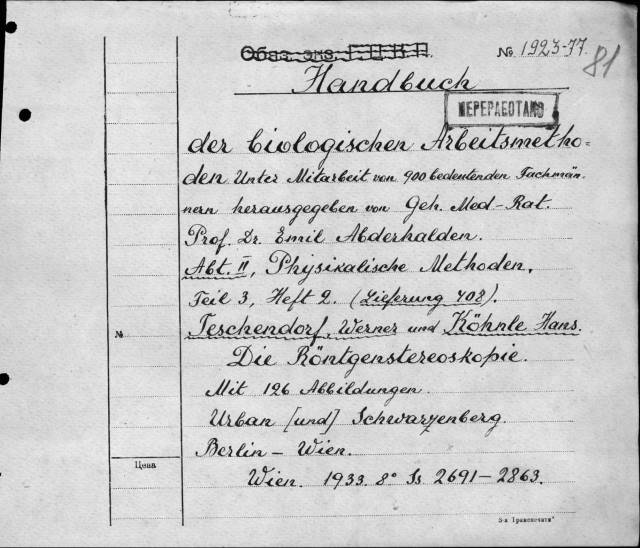 Обяз. экз. Г.Ц.К.П.
№ 1923-77
81
Handbuch
ПЕРЕРАБОТАНО
der biologischen Arbeitsmetho=
den Unter Mitarbeit von 900 bedeutenden Fachmän-
nern herausgegeben von Geh. Med-Rat.
Prof. Dr. Emil Abderhalden.
Abt. II, Physikalische Methoden,
Teil 3, Heft 2. (Lieferung 408).
№
Teschendorf, Werner und Köhnle Hans.
Die Röntgenstereoskopie.
Mit 126 Abbildungen.
Urban [und] Schwarzenberg.
Berlin – Wien.
Цена
Wien. 1933. 8° Ss 2691–2863.
3-я Транспечати"